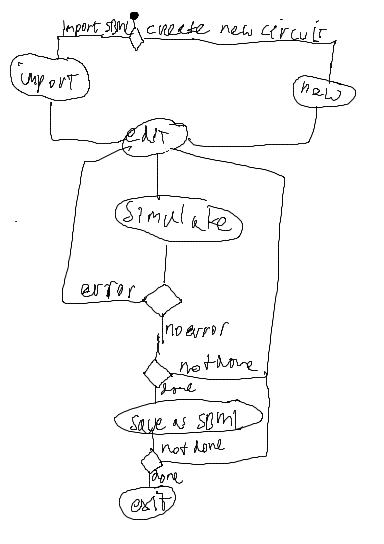 Import SBML create new circuit
import
new
edit
Simulate
error
no error
not done
done
Save as SBMl
not done
done
exit